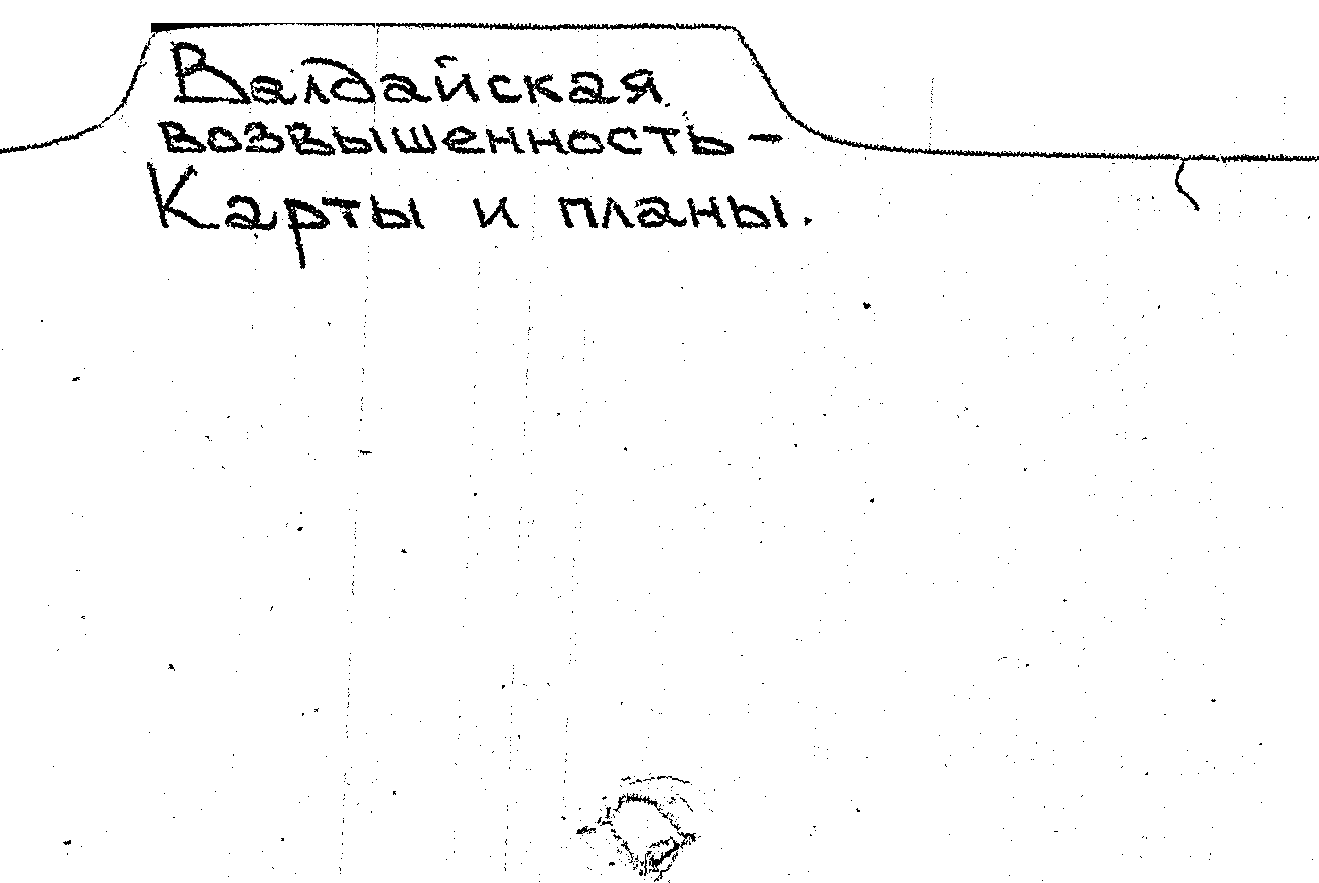 Валдайская
возвышенность –
Карты и планы.